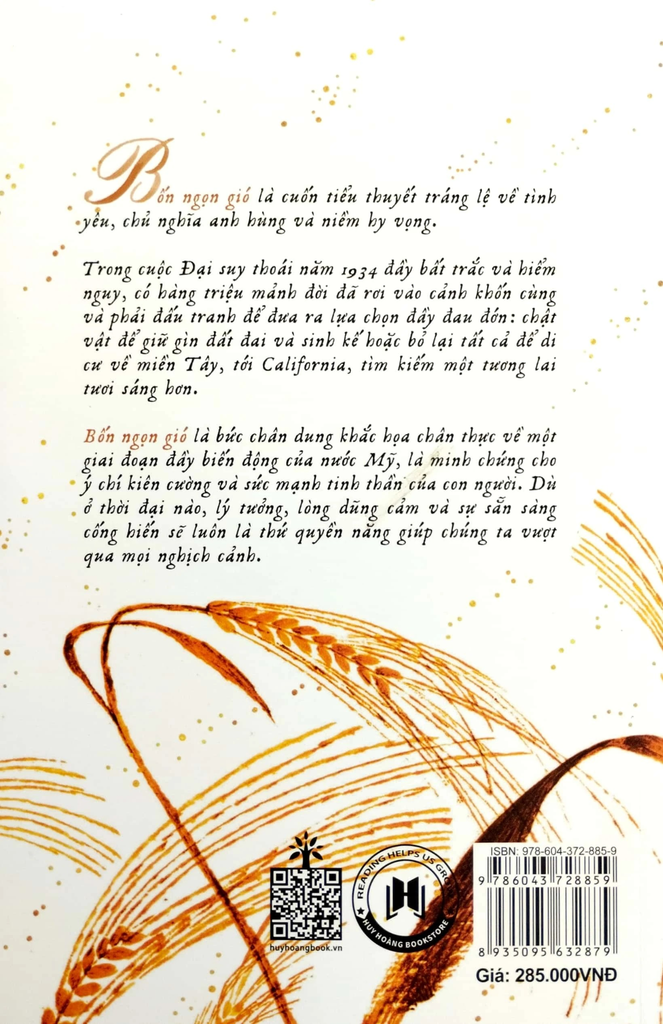 Bốn ngọn gió là cuốn tiểu thuyết tráng lệ về tình
yêu, chủ nghĩa anh hùng và niềm hy vọng.
Trong cuộc Đại suy thoái năm 1934 đầy bất trắc và hiểm
nguy, có hàng triệu mảnh đời đã rơi vào cảnh khốn cùng
và phải đấu tranh để đưa ra lựa chọn đầy đau đón: chật
vật để giữ gìn đất đai và sinh kế hoặc bỏ lại tất cả để di
cư về miền Tây, tới California, tìm kiếm một tương lai
tươi sáng hơn.
Bốn ngọn gió là bức chân dung khắc họa chân thực về một
giai đoạn đầy biến động của nước Mỹ, là minh chứng cho
ý chí kiên cường và sức mạnh tinh thần của con người. Dù
ở thời đại nào, lý tưởng, lòng dũng cảm và sự sẵn sàng
cống hiến sẽ luôn là thứ quyền năng giúp chúng ta vượt
qua mọi nghịch cảnh.
huyhoangbook.vn
READING HELPS US GRO
HUY HOÀNG BOOKSTORE
ISBN: 978-604-372-885-9
9 786043 728859
8 935095 632879
Giá: 285.000VNĐ